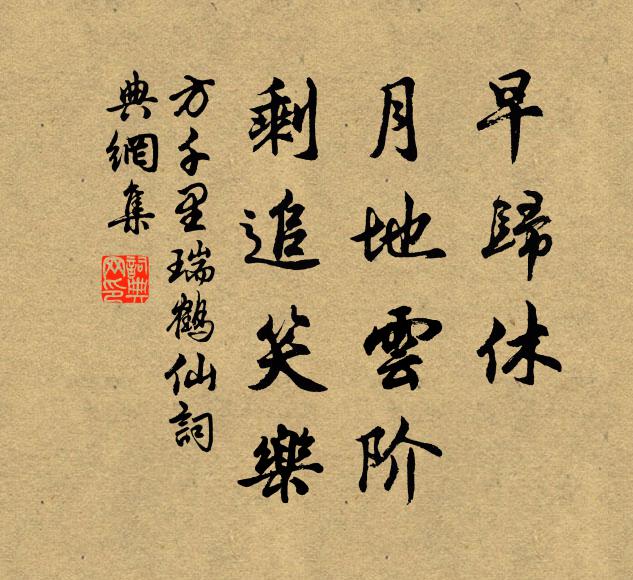 早歸休
月地雲阶
剩追笑樂
方千里瑞鶴仙詞
典網集
詞典網印